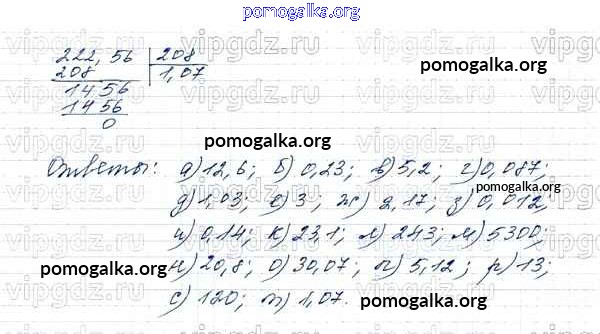 pomogalka.org
222,56 | 208
208 1,07
1456
1456
0
pomogalka.org
pomogalka.org
Ответы: а) 12,6; б) 0,23; в) 5,2; г) 0,087;
pomogalka.org
д) 1,03; е) 3; ж) 2,17; з) 0,012;
и) 0,14; к) 23,1; л) 243; м) 5300;
н) 20,8; о) 30,07; п) 5,12; р) 13;
pomogalka.org
с) 120; т) 1,07.
pomogalka.org
vipgdz.ru vipgdz.ru vipgdz.ru